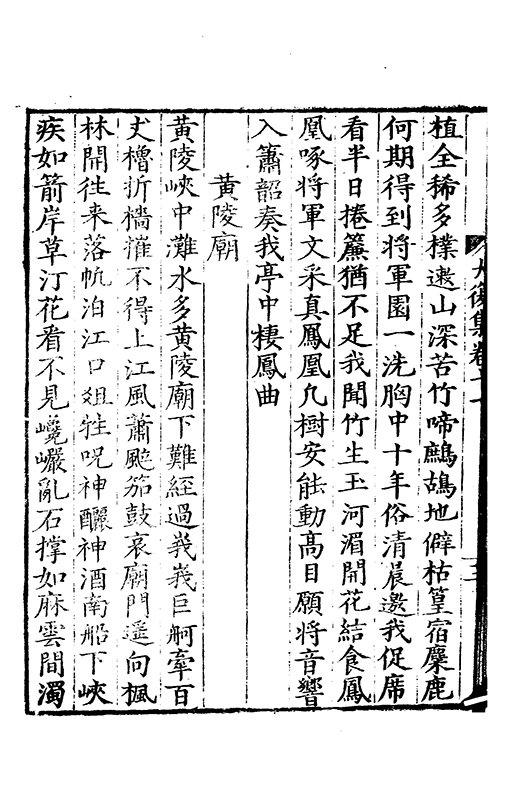 植全稀多樸遬山深苦竹啼鷓鴣地僻枯篁宿麋鹿
何期得到將軍園一洗胸中十年俗清晨邀我促席
看半日捲簾猶不足我聞竹生玉河湄開花結食鳳
凰啄將軍文采真鳳凰凡樹安能動高目願將音響
入簫韶奏我亭中棲鳳曲
黃陵廟
黃陵峽中灘水多黃陵廟下難經過峩峩巨舸牽百
丈櫓折檣摧不得上江風蕭颼笳鼓哀廟門遥向楓
林開徃来落帆泊江口俎牲呪神釃神酒南船下峽
疾如箭岸草汀花看不見巉巖亂石撐如麻雲間濁
大復集卷十